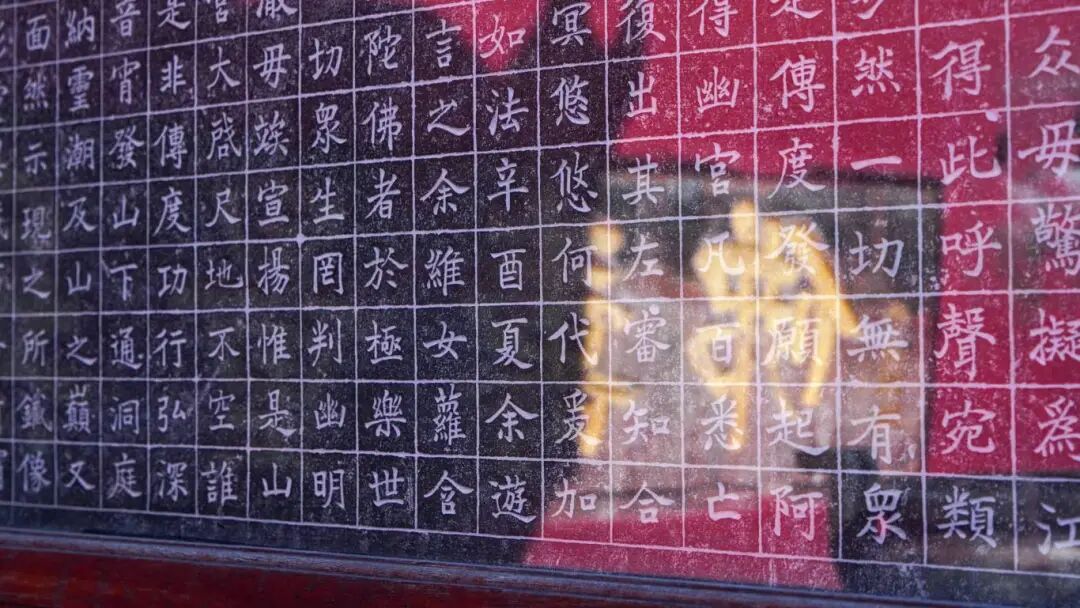 众毋驚擬爲江
得此呼聲宛類
然一切無有眾
是傳度發願起阿
得幽宮凡百悉亡
復出其左審知合
冥悠悠何代爰加
如法辛酉夏余遊
言之余維女蘿含
陀佛者於極樂世
切眾生罔判幽明
毋竢宣揚惟是山
大啓尺地不空誰
是非傳度功行弘深
音宵發山下通洞庭
納霊潮及山之巔又
面然示現之所鐵像